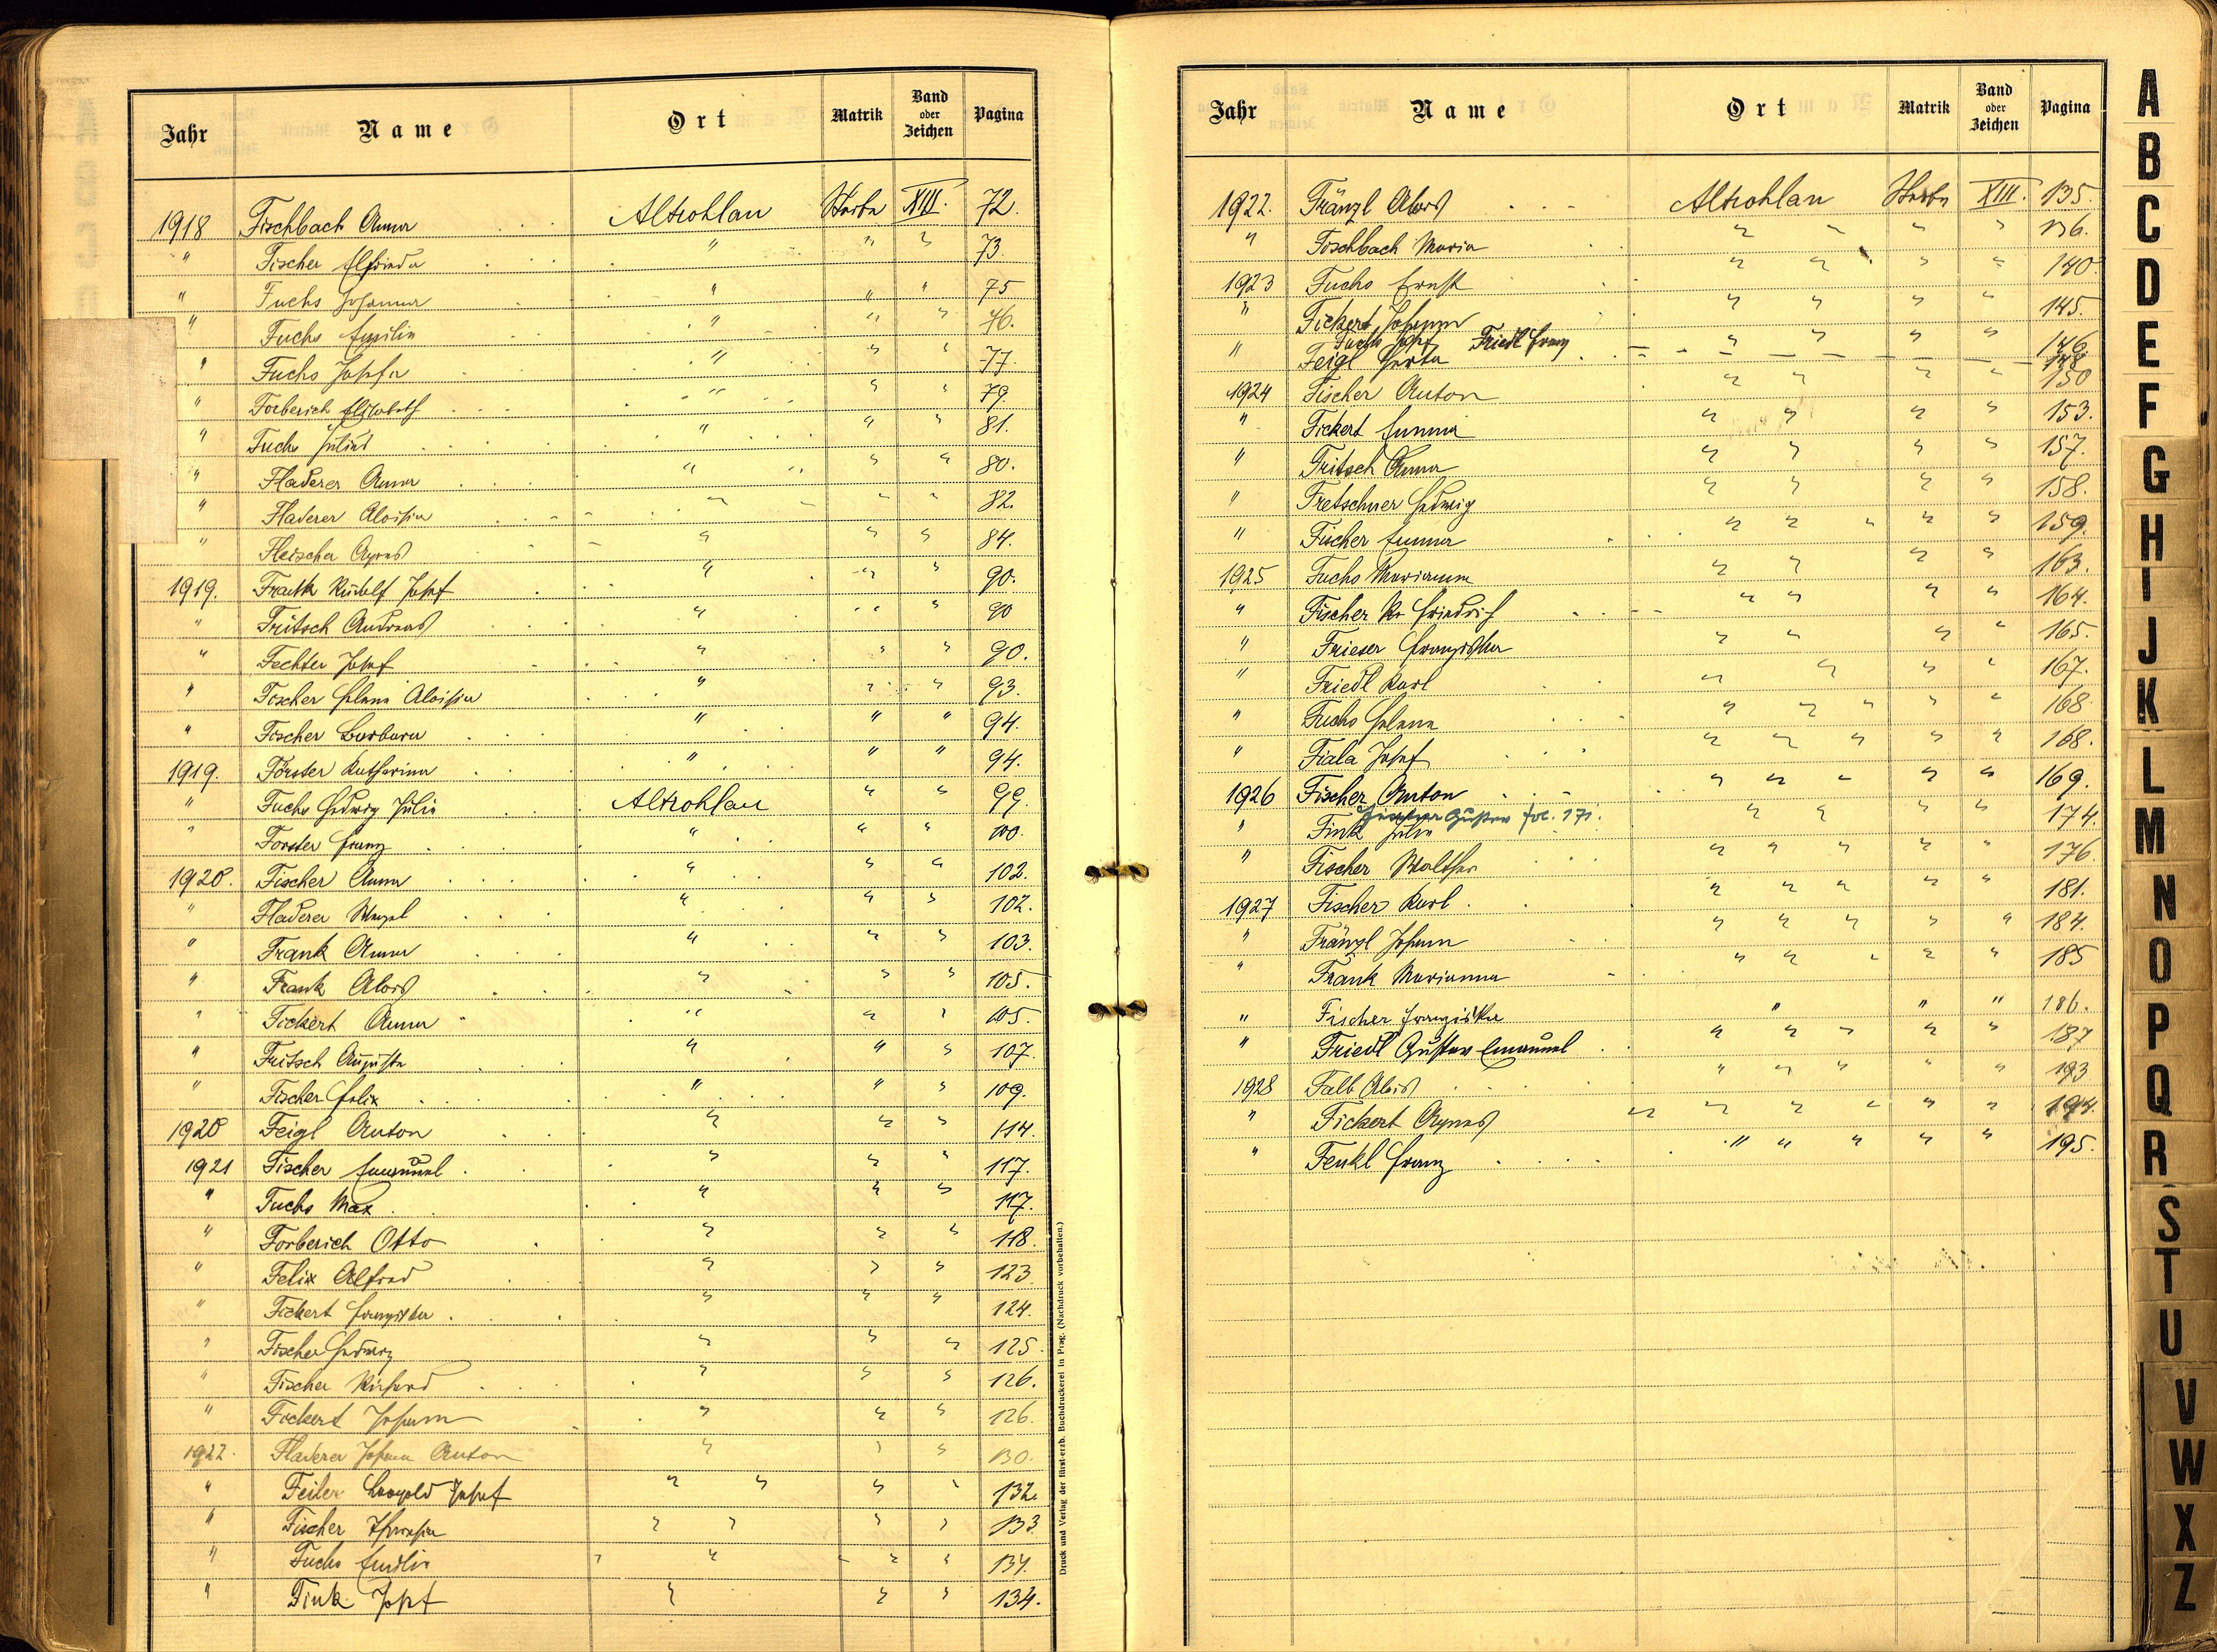 Jahr Name Ort Matrik Band oder Zeichen Pagina
1918 Fischbach Anna Altrohlau Sterbe XIII. 72.
" Fischer Elfrieda " " " 73.
" Fuchs Johanna " " " 75
" Fuchs Emilie " " " 76.
" Fuchs Josefa " " " 77.
" Forberich Elisabeth " " " 79.
" Fuchs Julius " " " 81.
" Fladerer Anna " " " 80.
" Fladerer Aloisia " " " 82.
" Fleischer Agnes " " " 84.
1919. Frank Rudolf Josef " " " 90.
" Fritsch Andreas " " " 90
" Fechter Josef " " " 90.
" Fischer Helene Aloisia " " " 93.
" Fischer Barbara " " " 94.
1919. Förster Katharina " " " 94.
" Fuchs Hedwig Julie Altrohlau " " 99.
" Forster Franz " " " 100.
1920. Fischer Anna " " " 102.
" Fladerer Wenzel " " " 102.
" Frank Anna " " " 103.
" Frank Alois " " " 105.
" Fickert Anna " " " 105.
" Fritsch Auguste " " " 107.
" Fischer Felix " " " 109.
1920 Feigl Anton " " " 114.
1921 Fischer Emanuel " " " 117.
" Fuchs Max " " " 117.
" Forberich Otto " " " 118.
" Felix Alfred " " " 123.
" Fickert Franziska " " " 124.
" Fischer Hedwig " " " 125.
" Fischer Richard " " " 126.
" Fickert Johann " " " 126.
1922. Fladerer Johann Anton " " " 130.
" Feiler Leopold Josef " " " " 132.
" Fischer Theresia " " " " 133.
" Fuchs Emilie " " " " 134.
" Fink Josef " " " 134.
Druck und Verlag der fürst-erzb. Buchdruckerei in Prag. (Nachdruck vorbehalten.)
Jahr Name Ort Matrik Band oder Zeichen Pagina
1922. Fränzl Alois Altrohlau Sterbe XIII. 135.
" Fischbach Maria " " " " 136.
1923 Fuchs Ernst " " " " 140.
" Fickert Johann " " " " 145.
Fuchs Josef Friedl Franz " " " " 146.
" Feigl Herta 148
1924 Fischer Anton " " " " 150
" Fickert Emma " " " " 153.
" Fritsch Anna " " " " 157.
" Fretschner Hedwig " " " " 158.
" Fischer Emma " " " " " 159.
1925 Fuchs Marianna " " " " 163.
" Fischer Friedrich " " " " 164.
" Frieser Franziska " " " " 165.
" Friedl Karl " " " " 167.
" Fuchs Helene " " " " " 168
" Fiala Josef " " " " " 168.
1926 Fischer Anton " " " " " 169.
Fischer Gustav fol. 171.
" Fink Julie " " " " 174.
" Fischer Walther " " " " " 176
1927 Fischer Karl " " " " " 181.
" Fränzl Johann " " " " " 184.
" Frank Marianna " " " " " 185
" Fischer Franziska " " " 186.
" Friedl Gustav Emanuel " " " " " 187
1928 Falb Alois " " " " " 193
" Fickert Agnes " " " " " " 194.
" Fenkl Franz " " " " " 195.
A
B
C
D
E
F
G
H
I
J
K
L
M
N
O
P
Q
R
S
T
U
V
W
X
Z